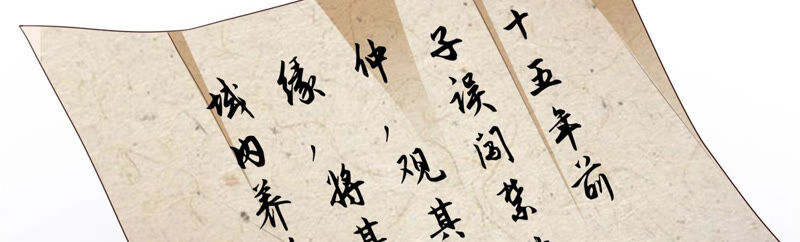 十五年前
子误闯禁
仲，观其
缘，将其
域内养